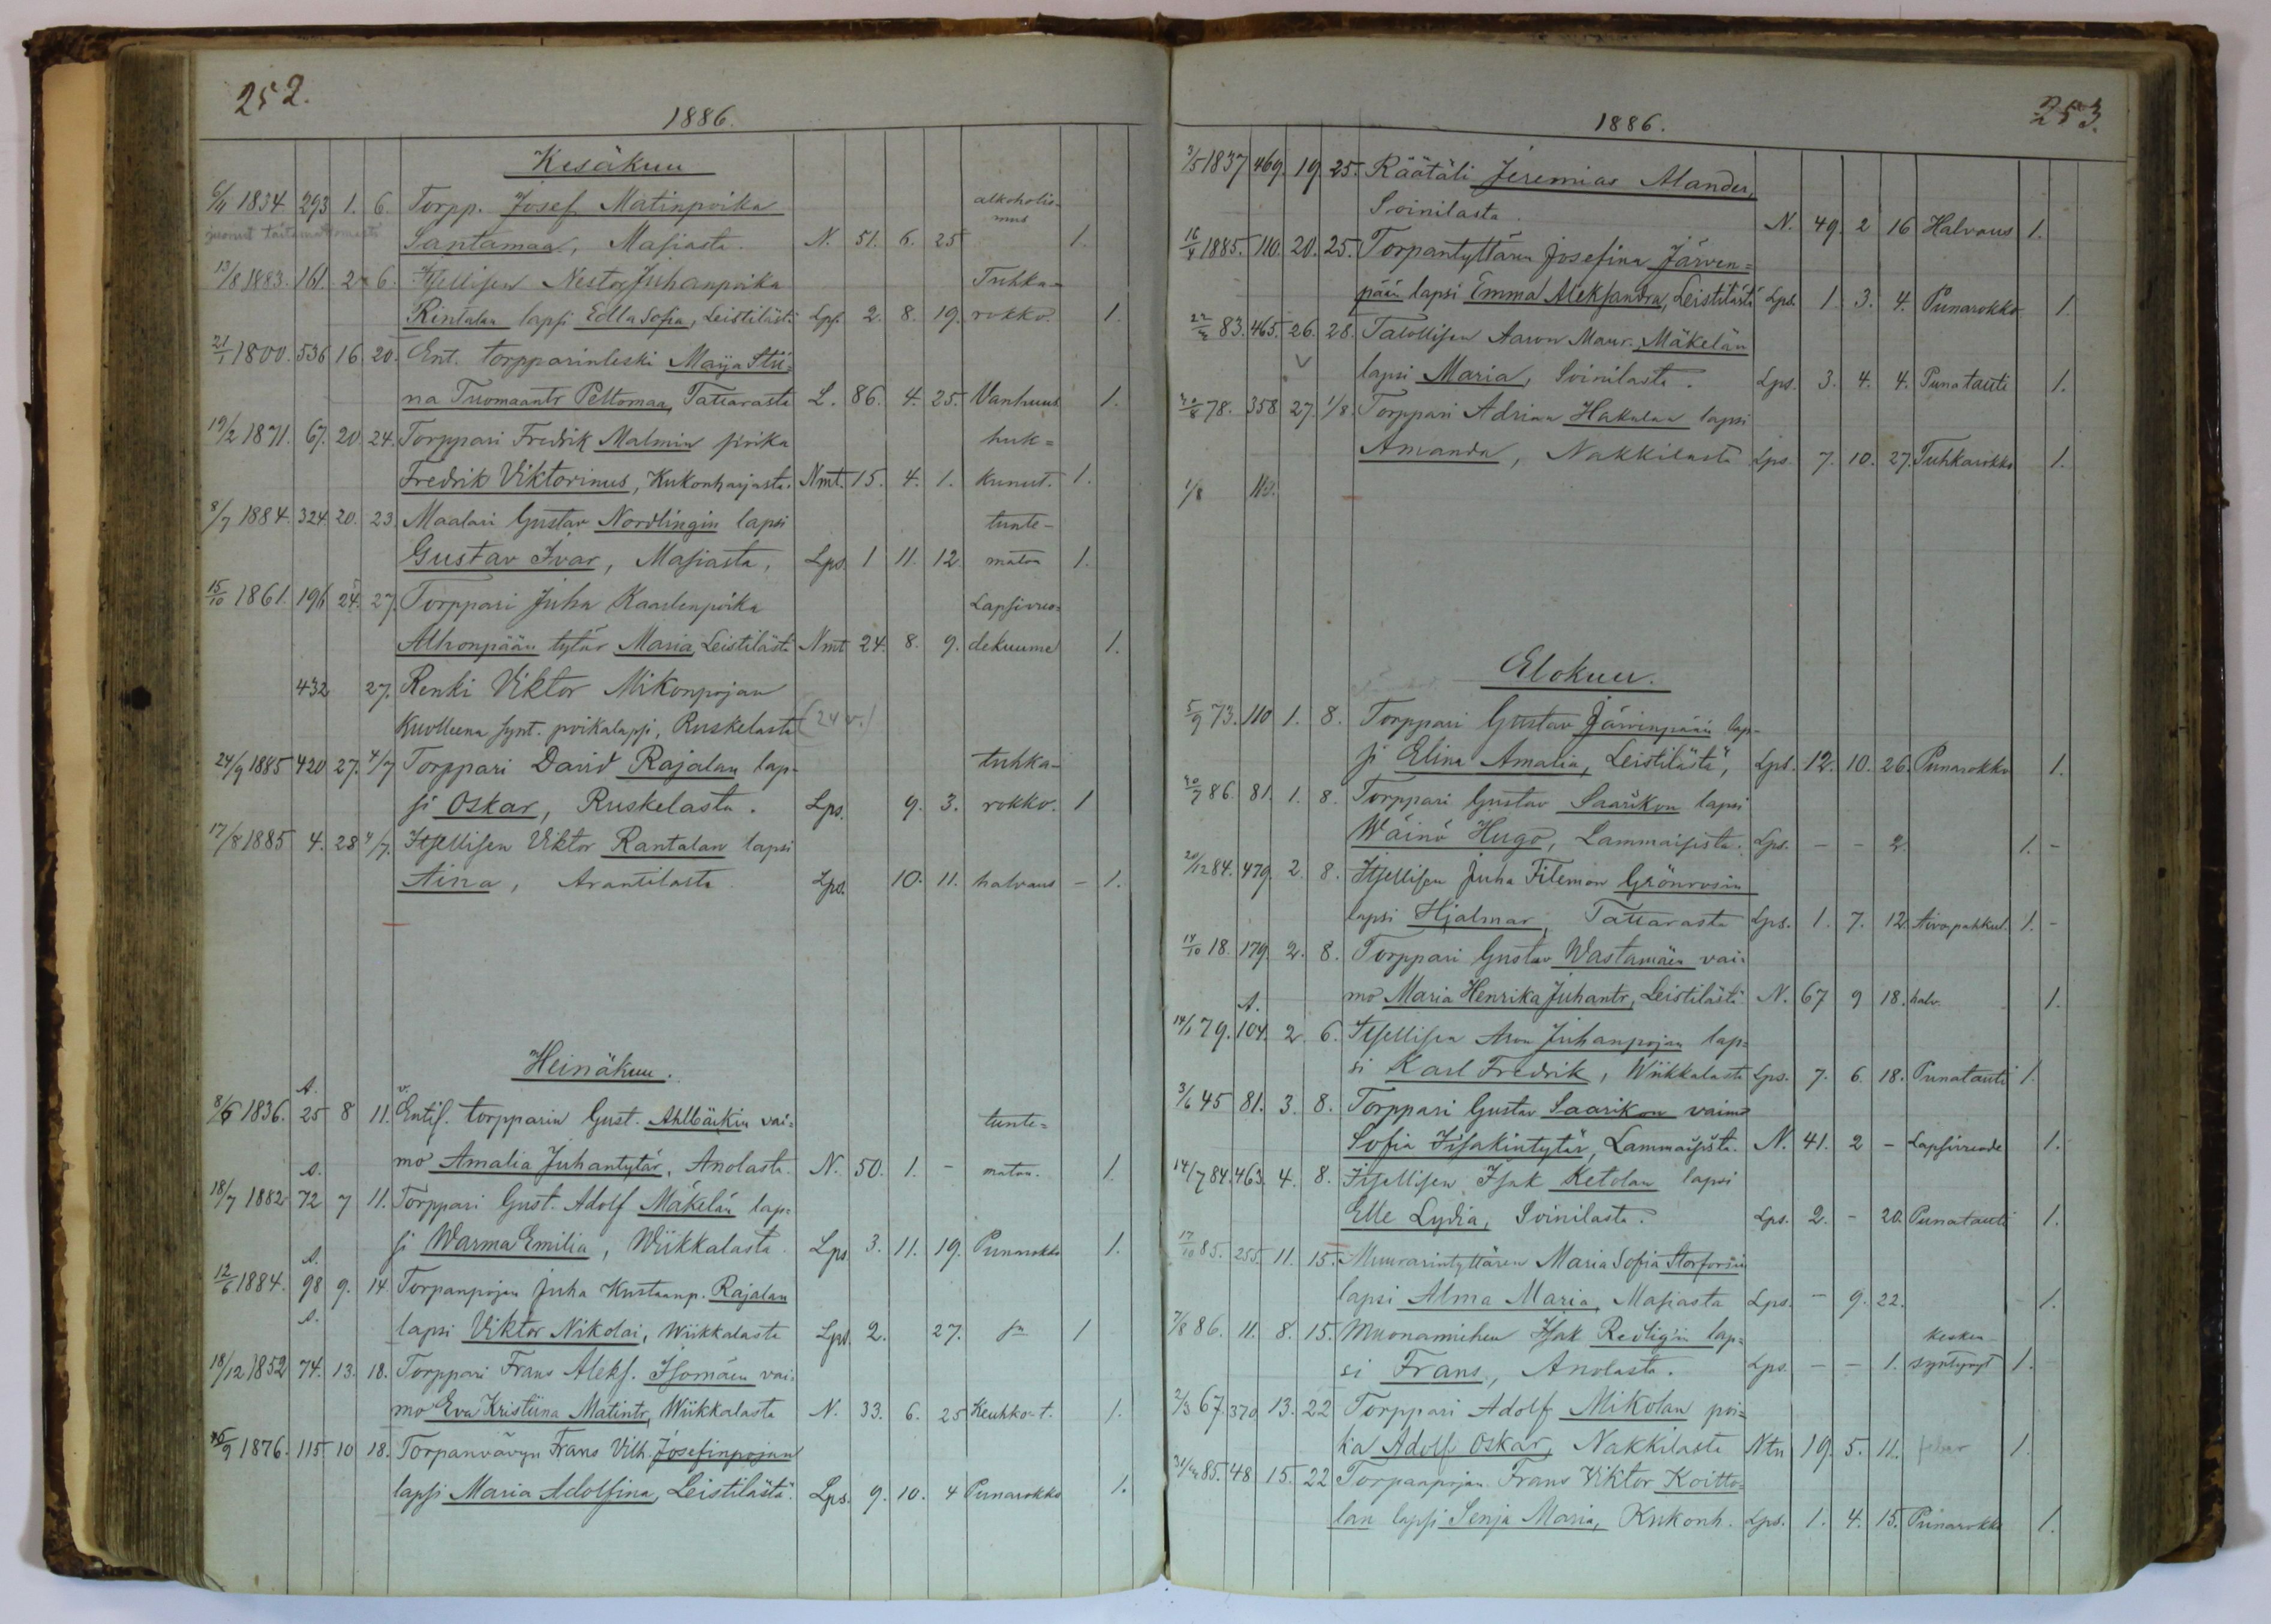 252.
1886.
Kesäkuu
6/11 1834 293 1. 6. Torpp. Josef Matinpoika alkoholis-
mus
Santamaa, Masiasta. N. 51. 6. 25 1.
13/8 1883. 161. 2 6. Itsellisen Nestor Juhanpoika Tuhka-
Rintalan lapsi Edla Sofia, Leistilästä Lps. 2. 8. 19. rokko. 1.
21/1 1800. 536 16. 20. Ent. torpparinleski Maija Stii-
na Tuomaantr Peltomaa, Tattarasta L. 86. 4. 25. Vanhuus 1.
19/2 1871. 67. 20. 24. Torppari Fredrik Malmin poika huk-
Fredrik Viktorinus, Kukonharjasta. Nmt. 15. 4. 1. kunut. 1.
8/7 1884. 324 20. 23 Maalari Gustav Nordlingin lapsi tunte-
Gustav Ivar, Masiasta, Lps. 1 11. 12. maton 1.
15/10 1861. 196 24. 27. Torppari Juha Kaarlenpoika Lapsivuo-
Alhonpään tytär Maria Leistilästä Nmt 24. 8. 9. dekuume 1.
432 27. Renki Viktor Mikonpojan
Kuolleena synt. poikalapsi, Ruskelasta (24 v.)
24/9 1885 420 27. 4/7 Torppari David Rajalan lap- tuhka-
si Oskar, Ruskelasta. Lps. 9. 3. rokko. 1
17/8 1885 4. 28 4/7. Itsellisen Viktor Rantalan lapsi
Aina, Arantilasta Lps. 10. 11. halvaus - 1.
Heinäkuu.
A.
8/5 1836. 25 8 11. Entis. torpparin Gust. Ahlbäckin vai- tunte-
mo Amalia Juhantytär, Anolasta. N. 50. 1. - maton. 1.
A.
18/7 1882 72 7 11. Torppari Gust. Adolf Mäkelän lap-
si Warma Emilia, Wiikkalasta. Lps. 3. 11. 19. Punarokko 1.
A.
12/6 1884. 98 9. 14 Torpanpojan Juha Kustaanp. Rajalan
A.
lapsi Viktor Nikolai, Wiikkalasta Lps. 2. 27. 1
18/12 1852 74. 13. 18. Torppari Frans Aleks. Isomäen vai-
mo Eva Kristiina Matintr, Wiikkalasta N. 33. 6. 25 Keuhko-t. 1.
1876. 115. 10 18. Torpanvävyn Frans Vilh. Josefinpojan
lapsi Maria Adolfina, Leistilästä. Lps. 9. 10. 4 Punarokko 1.
253.
1886.
3/5 1837 469. 19 25. Räätäli Jeremias Alander,
Soinilasta. N. 49. 2 16 Halvaus 1.
1885. 110. 20. 25. Torpantyttären Josefina Järven-
pään lapsi Emma Aleksandra, Leistilästä Lps. 1. 3. 4. Punarokko 1.
83. 465. 26. 28. Talollisen Aaron Maur. Mäkelän
lapsi Maria, Soinilasta. Lps. 3. 4. 4. Punatauti 1.
78. 358 27. 1/8. Torppari Adrian Hakalan lapsi
Amanda, Nakkilasta Lps. 7. 10. 27. Tuhkarokko 1.
1/8
Elokuu.
5/9 73. 110 1. 8. Torppari Gustav Järvinpään lap-
si Elina Amalia, Leistilästä, Lps. 12. 10. 26. Punarokko 1.
86. 81. 1. 8. Torppari Gustav Saarikon lapsi
Wäinö Hugo, Lammaisista. Lps. - - 2. 1. -
20/12 84. 479. 2. 8. Itsellisen Juha Filemon Grönrosin
lapsi Hjalmar, Tattarasta Lps. 1. 7. 12. 1. -
14/10 18. 179. 2. 8. Torppari Gustav Wastamäen vai-
mo Maria Henrika Juhantr, Leistilästä N. 67 9 18. halv. 1.
A.
14/1 79. 104. 2. 6. Itsellisen Aron Juhanpojan lap-
si Karl Fredrik, Wiikkalasta Lps. 7. 6. 18. Punatauti 1.
3/6 45 81. 3. 8. Torppari Gustav Saarikon vaimo
Sofia Iisakintytär, Lammaisista. N. 41. 2 - Lapsivuode 1.
14/7 84. 463. 4. 8. Itsellisen Isak Ketolan lapsi
Elle Lydia, Soinilasta. Lps. 2. - 20. Punatauti 1.
17/10 85. 255. 11. 15. Muurarintyttären Maria Sofia Storforsin
lapsi Alma Maria, Masiasta Lps. - 9. 22. 1.
7/8 86. 11. 8. 15. Muonamiehen Isak Redligin lap- kesken-
si Frans, Anolasta. Lps. - - 1. syntynyt 1.
2/3 67. 370. 13. 22 Torppari Adolf Mikolan poi-
ka Adolf Oskar, Nakkilasta Ntn 19. 5. 11. 1.
85. 48 15. 22 Torpanpojan Frans Viktor Koitto-
lan lapsi Senja Maria, Kukonh. Lps. 1. 4. 15. Punarokko 1.